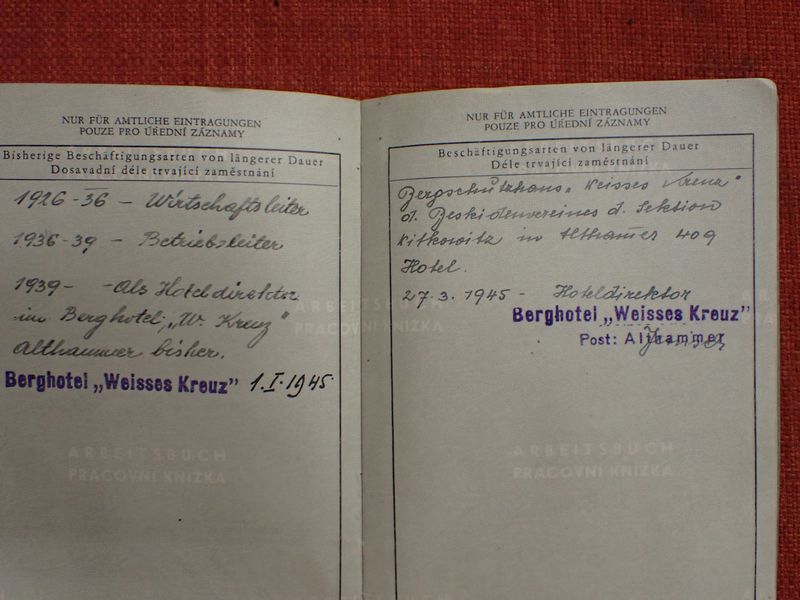 NUR FÜR AMTLICHE EINTRAGUNGEN
POUZE PRO ÚŘEDNÍ ZÁZNAMY
Bisherige Beschäftigungsarten von längerer Dauer
Dosavadní déle trvající zaměstnání
1926-36 – Wirtschaftsleiter
1936-39 – Betriebsleiter
1939- - Als Hoteldirektor
im Berghotel „W. Kreuz"
Althammer bisher.
Berghotel „Weisses Kreuz" 1.I.1945
ARBEITSBUCH
PRACOVNÍ KNÍŽKA
ARBEITSBUCH
PRACOVNÍ KNÍŽKA
NUR FÜR AMTLICHE EINTRAGUNGEN
POUZE PRO ÚŘEDNÍ ZÁZNAMY
Beschäftigungsarten von längerer Dauer
Déle trvající zaměstnání
Bergschutzhaus „Weisses Kreuz"
d. Beskidenvereines d. Sektion
Witkowitz in Althammer 409
Hotel.
27.3.1945 - Hoteldirektor
Berghotel „Weisses Kreuz"
Post: Althammer
ARBEITSBUCH
PRACOVNÍ KNÍŽKA